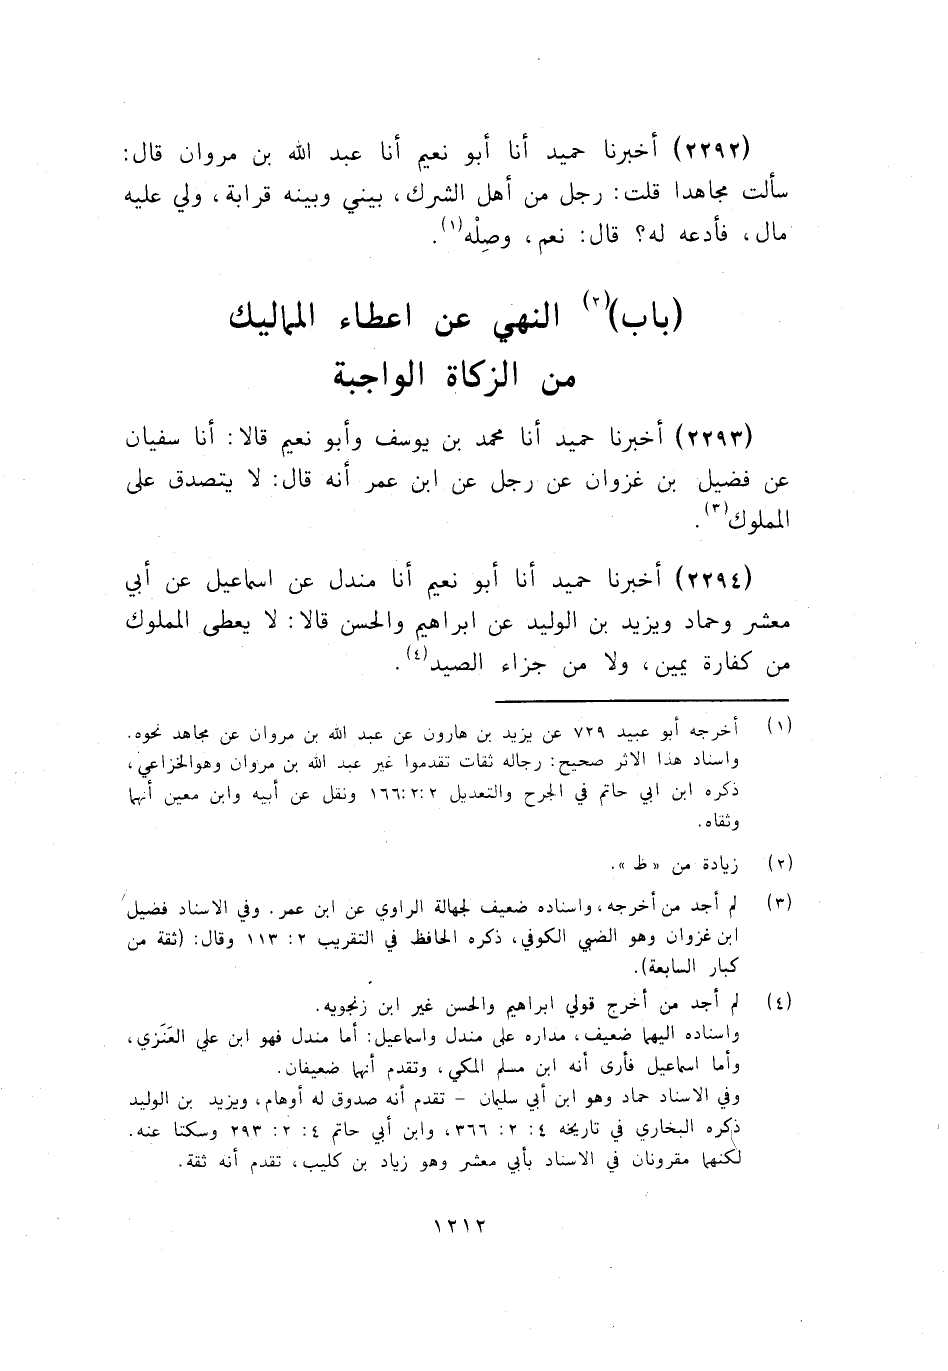 (٢٢٩٢) أخبرنا حميد أنا أبو نعيم أنا عبد الله بن مروان قال:
سألت مجاهدا قلت: رجل من أهل الشرك، بيني وبينه قرابة، ولي عليه
مال، فأدعه له؟ قال: نعم، وصِلْه(١).
(باب)(٢) النهي عن اعطاء المماليك
من الزكاة الواجبة
(٢٢٩٣) أخبرنا حميد أنا محمد بن يوسف وأبو نعيم قالا: أنا سفيان
عن فضيل بن غزوان عن رجل عن ابن عمر أنه قال: لا يتصدق على
المملوك(٣).
(٢٢٩٤) أخبرنا حميد أنا أبو نعيم أنا مندل عن اسماعيل عن أبي
معشر وحماد ويزيد بن الوليد عن ابراهيم والحسن قالا: لا يعطى المملوك
من كفارة يمين، ولا من جزاء الصيد(٤).
(١) أخرجه أبو عبيد ٧٢٩ عن يزيد بن هارون عن عبد الله بن مروان عن مجاهد نحوه.
واسناد هذا الاثر صحيح: رجاله ثقات تقدموا غير عبد الله بن مروان وهوالخزاعي،
ذكره ابن ابي حاتم في الجرح والتعديل ١٦٦:٢:٢ ونقل عن أبيه وابن معين أنهما
وثقاه.
(٢) زيادة من « ظ ».
(٣) لم أجد من أخرجه، واسناده ضعيف لجهالة الراوي عن ابن عمر. وفي الاسناد فضيل
ابن غزوان وهو الضبي الكوفي، ذكره الحافظ في التقريب ٢: ١١٣ وقال: (ثقة من
كبار السابعة).
(٤) لم أجد من أخرج قولي ابراهيم والحسن غير ابن زنجويه.
واسناده اليهما ضعيف، مداره على مندل واسماعيل: أما مندل فهو ابن علي العَنَزي،
وأما اسماعيل فأرى أنه ابن مسلم المكي، وتقدم أنهما ضعيفان.
وفي الاسناد حماد وهو ابن أبي سليمان – تقدم أنه صدوق له أوهام، ويزيد بن الوليد
ذكره البخاري في تاريخه ٤: ٢: ٣٦٦، وابن أبي حاتم ٤: ٢: ٢٩٣ وسكتا عنه.
لكنهما مقرونان في الاسناد بأبي معشر وهو زياد بن كليب، تقدم أنه ثقة.
١٢١٢